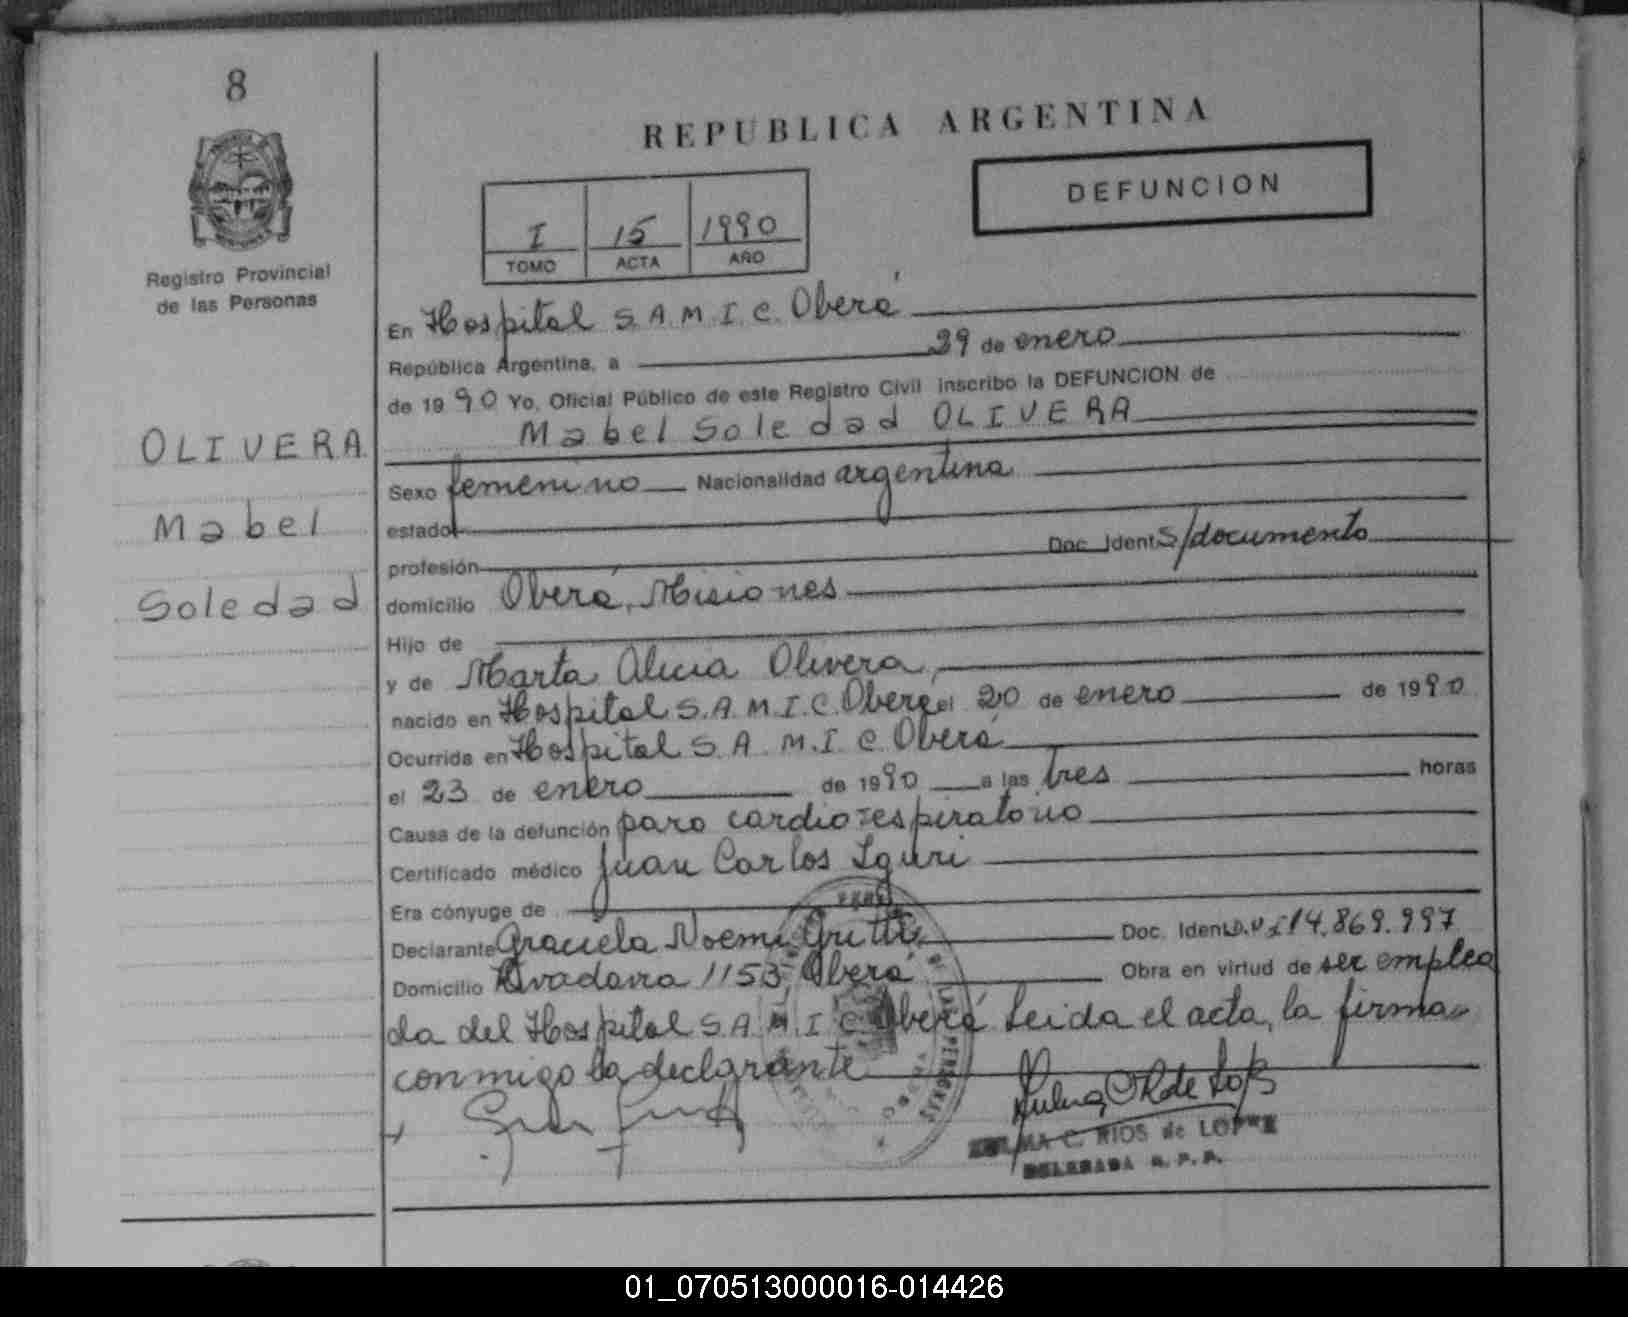 8
REPUBLICA ARGENTINA
DEFUNCION
I 15 1990
TOMO ACTA AÑO
Registro Provincial
de las Personas
En Hospital S.A.M.I.C. Oberá
República Argentina, a 29 de enero
de 1990 Yo, Oficial Público de este Registro Civil inscribo la DEFUNCION de
Mabel Soledad OLIVERA
OLIVERA
Mabel
Soledad
Sexo femenino Nacionalidad argentina
estado
profesión Doc. Ident. S/documento
domicilio Oberá, Misiones
Hijo de
y de Marta Alicia Olivera,
nacido en Hospital S.A.M.I.C. Oberá el 20 de enero de 1990
Ocurrida en Hospital S.A.M.I.C. Oberá
el 23 de enero de 1990 a las tres horas
Causa de la defunción paro cardiorespiratorio
Certificado médico Juan Carlos
Era cónyuge de
Declarante Graciela Noemi Doc. Ident. D.N.I 14.869.997
Domicilio Rivadavia 1153, Oberá Obra en virtud de ser emplea
da del Hospital S.A.M.I.C Oberá Leida el acta, la firma
conmigo la declarante
ZULMA C. RIOS de LOPEZ
DELEGADA R. P. P.
01_070513000016-014426